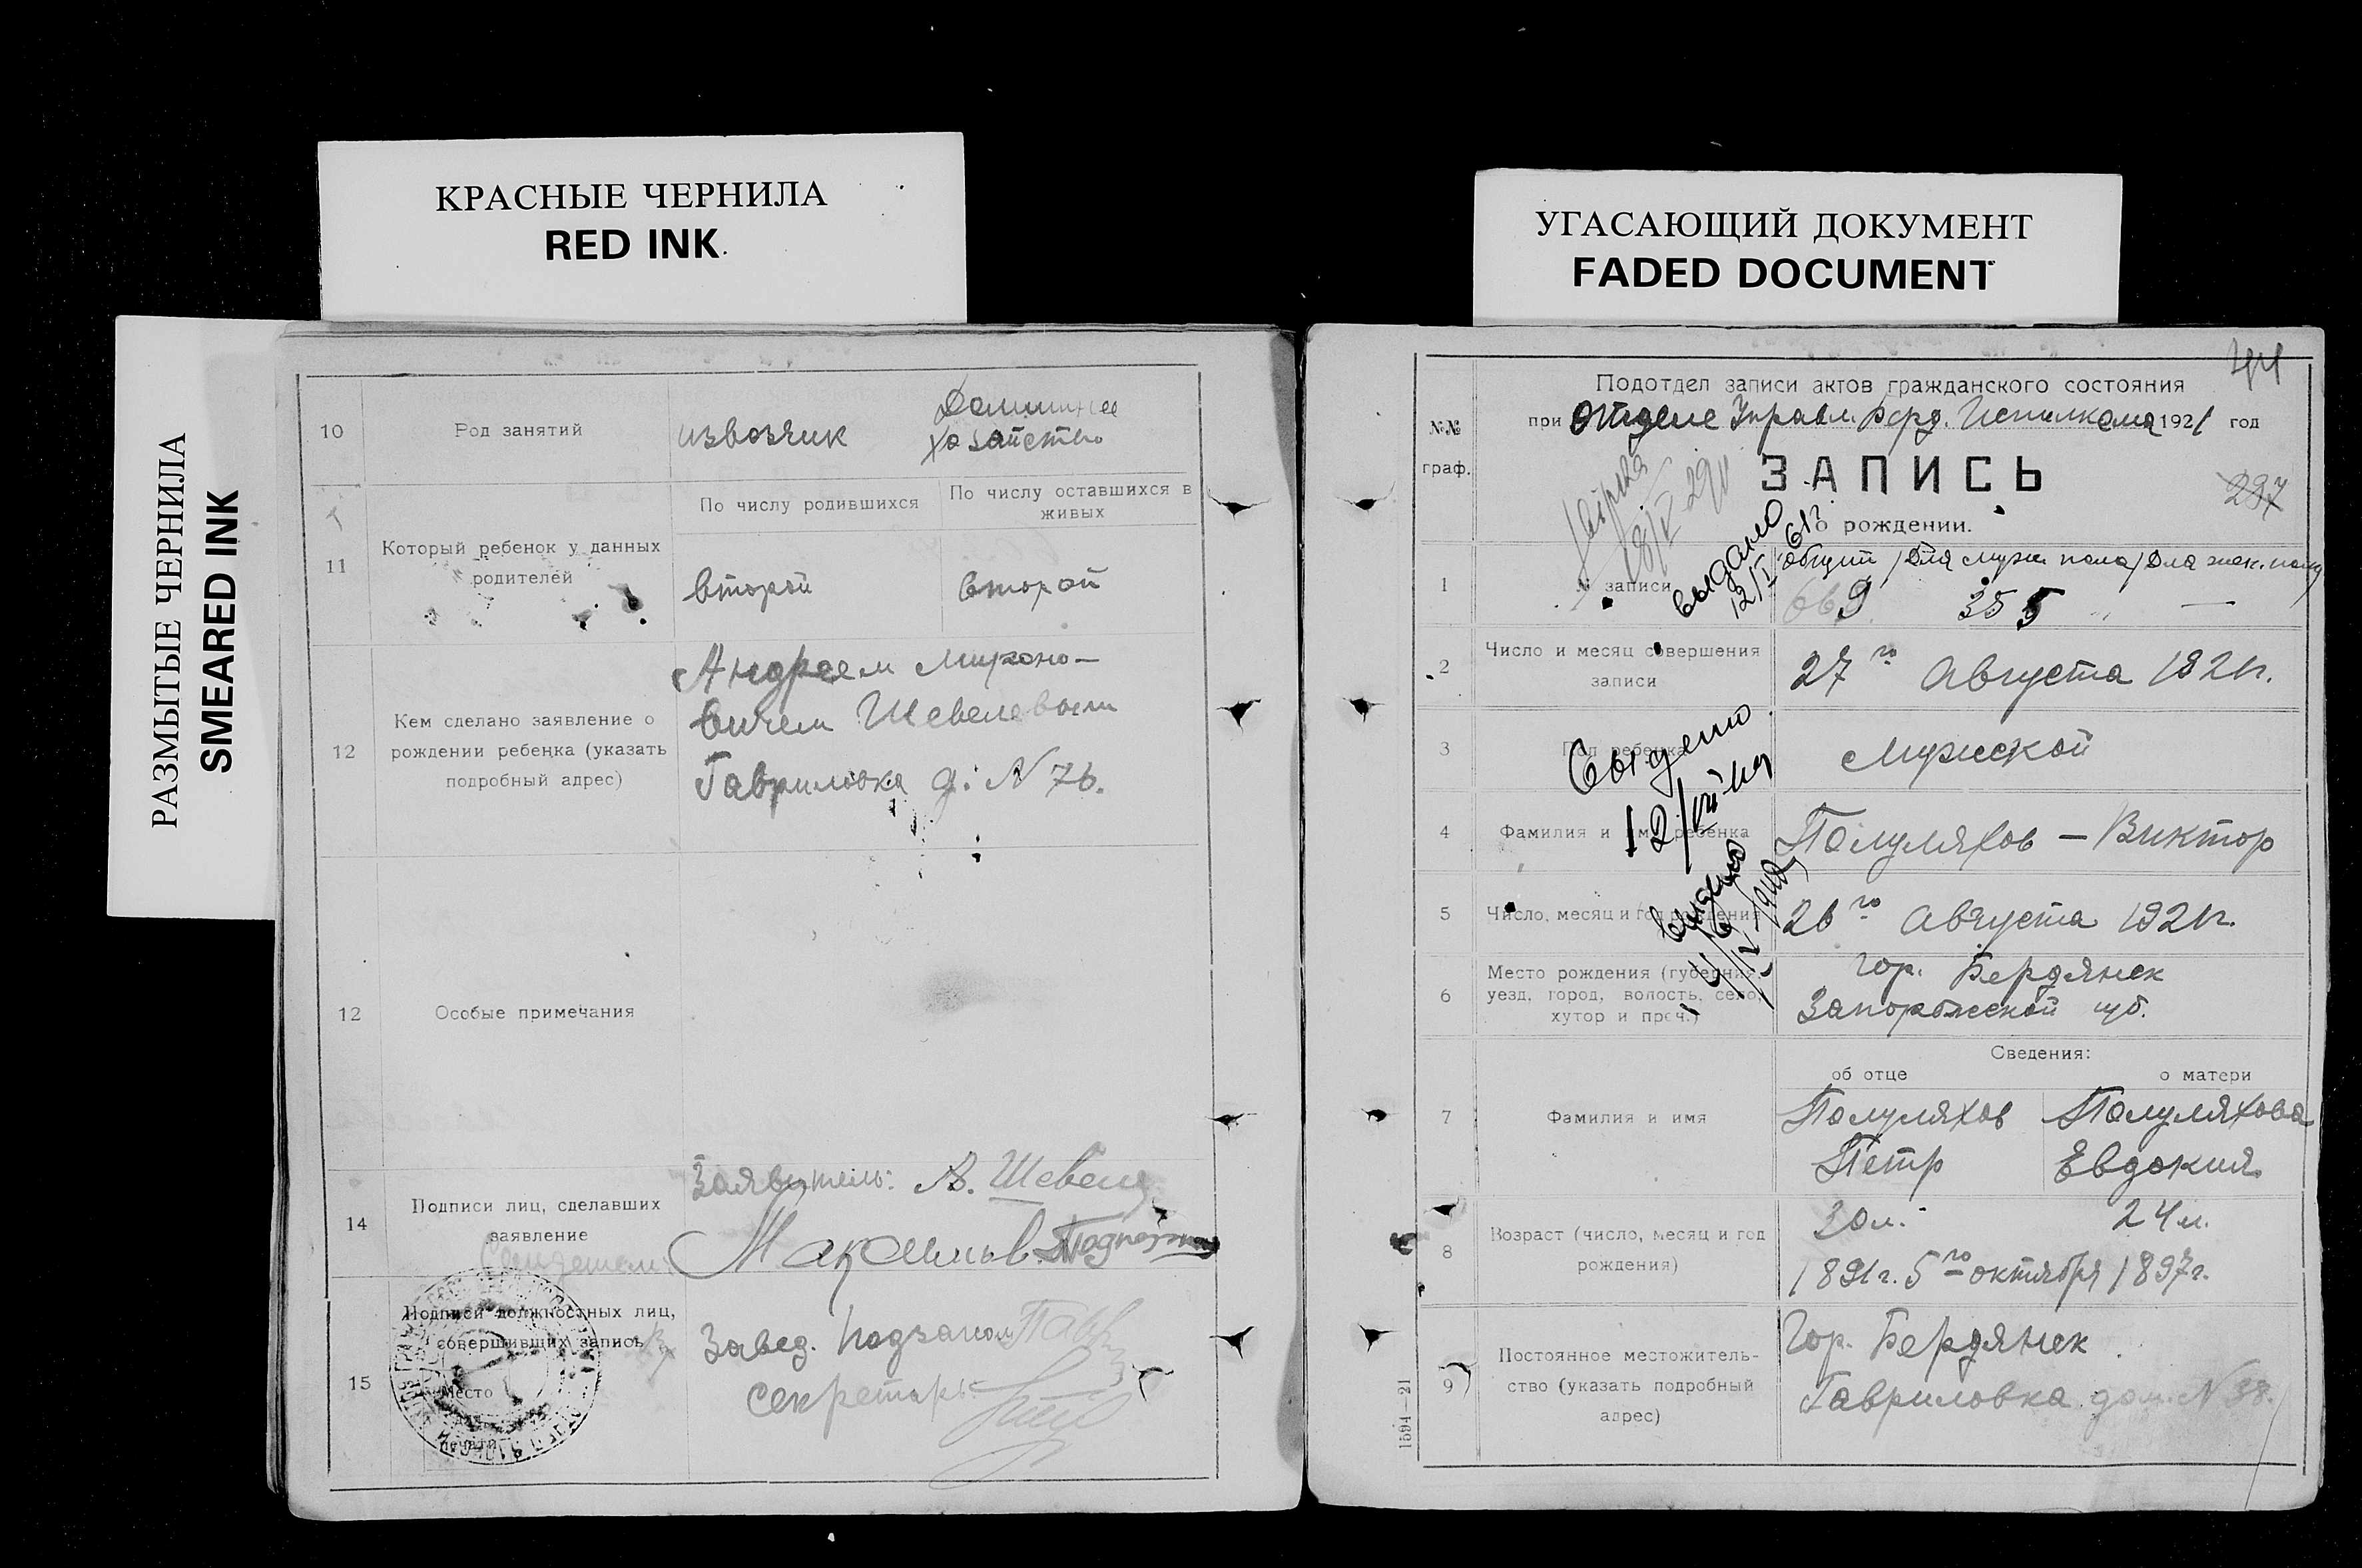 КРАСНЫЕ ЧЕРНИЛА
RED INK
УГАСАЮЩИЙ ДОКУМЕНТ
FADED DOCUMENT
РАЗМЫТЫЕ ЧЕРНИЛА
SMEARED INK
10 Род занятий извозчик Домашнее
хозайство
11 Который ребенок у данных
родителей
По числу родившихся
По числу оставшихся в
живых
второй второй
12 Кем сделано заявление о
рождении ребенка (указать
подробный адрес)
Андреем Мироно-
вичем Шевелевым
Гавриловка д. N 76.
12 Особые примечания
14 Подписи лиц, сделавших
заявление
Заявитель: А. Шевел
Свидетели:
15 Подписи должностных лиц,
совершивших запись
Место
печати
Завед. Подзагсом
Секретарь
44
Подотдел записи актов гражданского состояния
№№
граф.
при Отделе Управл. Берд. Исполкома 1921 год
ЗАПИСЬ
297
о рождении.
выдано
1 № записи
Общий / Для мужск. пола / Для жен. пола
669 355 " —
2 Число и месяц совершения
записи
27го Августа 1921г.
3 Пол ребенка Мужской
4 Фамилия и имя ребенка Полуляхов — Виктор
5 Число, месяц и год рождения 26го Августа 1921г.
6 Место рождения (губерния,
уезд, город, волость, село,
хутор и проч.)
Гор. Бердянск
Запорожской губ.
Сведения:
об отце о матери
7 Фамилия и имя
Полуляхов Полуляхова
Петр Евдокия
8 Возраст (число, месяц и год
рождения)
30л. 24л.
1891г. 5го октября 1897г.
9 Постоянное местожитель-
ство (указать подробный
адрес)
Гор. Бердянск
Гавриловка дом. N 38.
1594—21